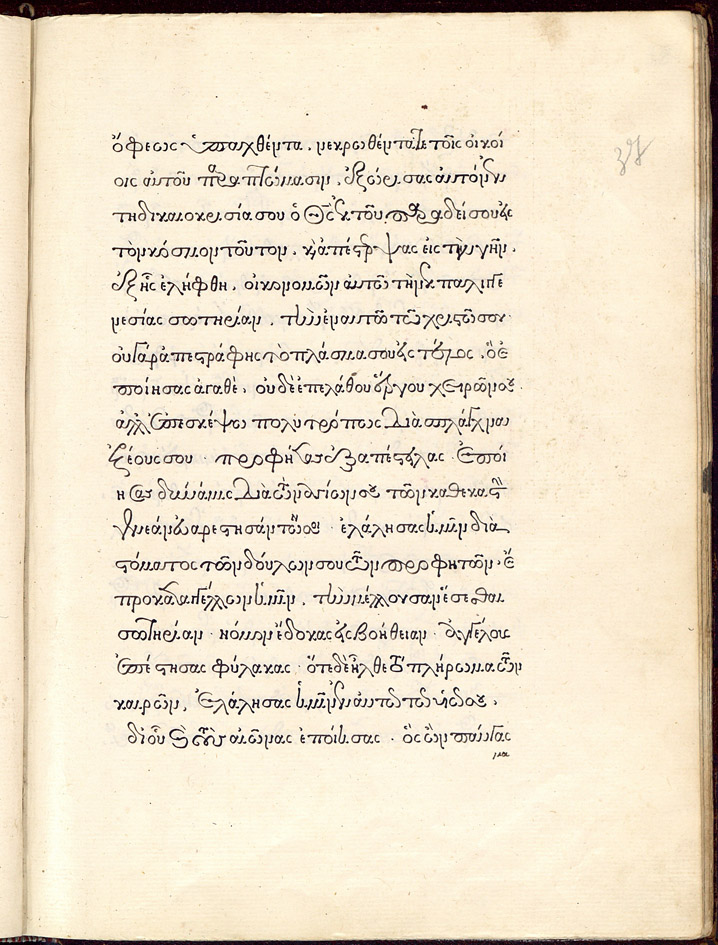 ὄφεως ὑπαχθέντα, νεκρωθέντα τε τοῖς οἰκεί
οις αὐτοῦ παραπτώμασιν, ἐξώρισας αὐτὸν ἐν
τῇ δικαιοκρισία σου ὁ Θεὸς ἐκ τοῦ παραδείσου εἰς
τὸν κόσμον τοῦτον, καὶ ἀπέστρεψας εἰς τὴν γῆν,
ἐξ ἧς ἐλήφθη, οἰκονομῶν αὐτῶ τὴν ἐκ παλιγγε
νεσίας σωτηρίαν, τὴν ἐν αυτῶ τῶ χριστῶ σου·
οὐ γὰρ ἀπεστράφης τὸ πλάσμα σου εἰς τέλος, ὃ ἐ
ποίησας ἀγαθὲ, οὐδὲ ἐπελάθου ἔργου χειρῶν σου·
ἀλλ' ἐπεσκέψω πολυτρόπως διὰ σπλάγχνα
ἐλέους σου· προφήτας ἐξαπέστειλας· ἐποί
ησας δυνάμεις διὰ τῶν ἁγίων σου τῶν καθ' εκάστην
γενεὰν εὐαρεστησάντων σοι· ἐλάλησας ἡμῖν διὰ
στόματος τῶν δούλων σου τῶν προφητῶν·
προκαταγγέλλων ἡμῖν, τὴν μέλλουσαν ἔσεσθαι
σωτηρίαν· νόμον ἔδοκας εἰς βοήθειαν· ἀγγέλους
ἐπέστησας φύλακας· ὅτε δὲ ἦλθε τὸ πλήρωμα τῶν
καιρῶν, ἐλάλησας ἡμῖν ἐν αυτῶ τῶ υἱῶ σου,
δι οὗ καὶ τοὺς αἰῶνας ἐποίησας· ὃς ὢν ἀπαύγας
μα